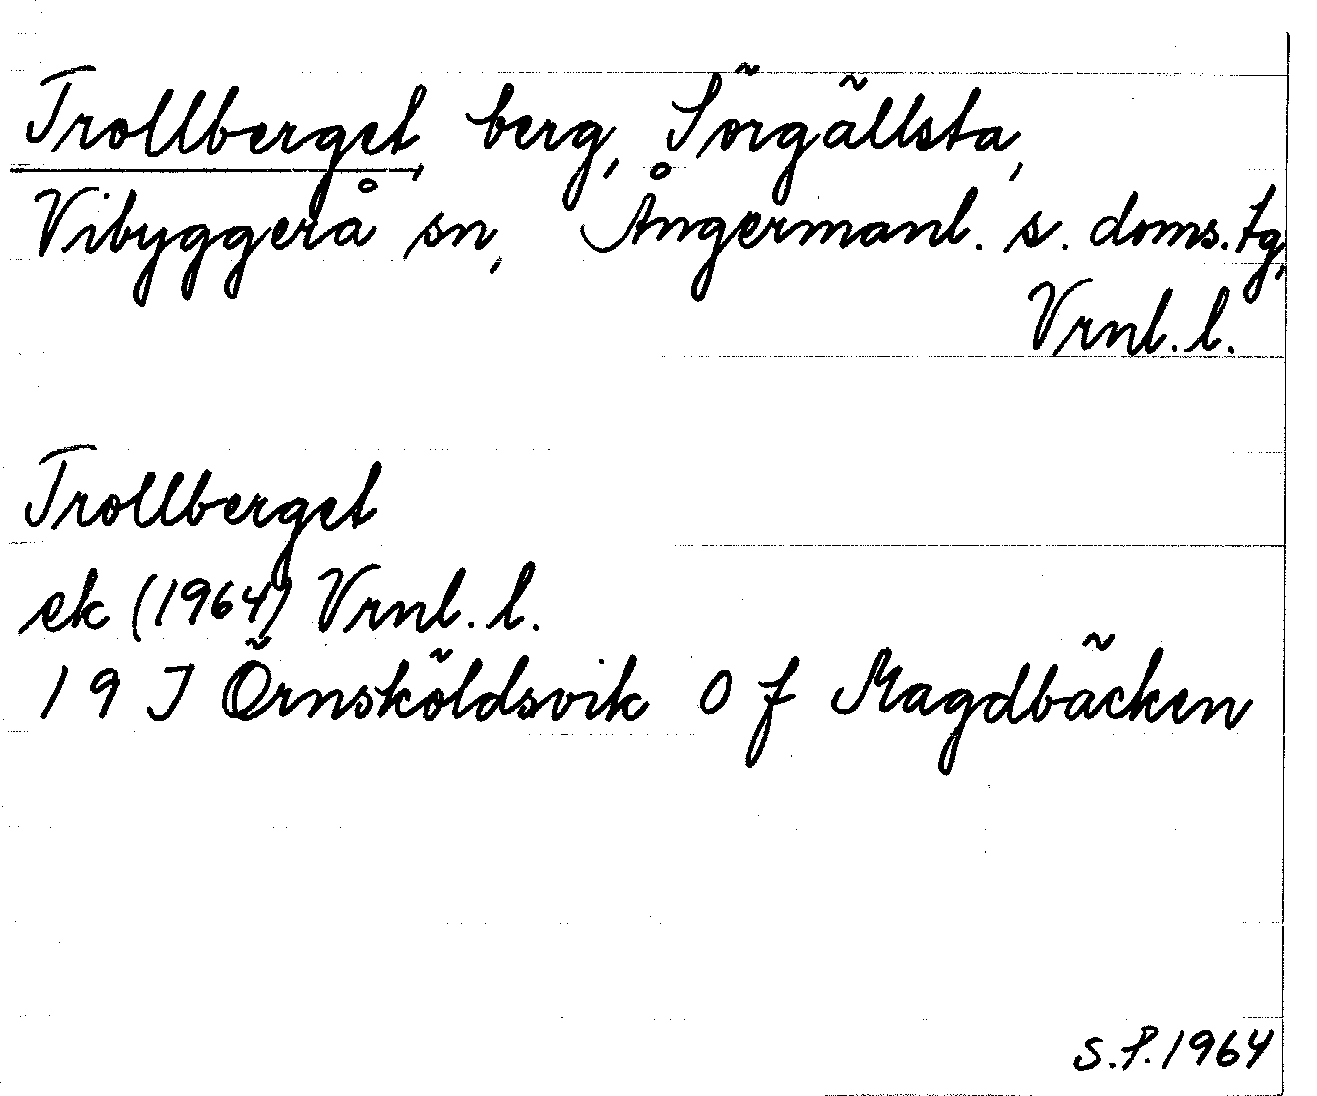 Trollberget, berg, Sörgällsta,
Vibyggerå sn, Ångermanl. s. doms. tg,
Vrnl. l.
Trollberget
ek (1964) Vrnl. l.
19 J Örnsköldsvik O f Magdbäcken
S.P. 1964